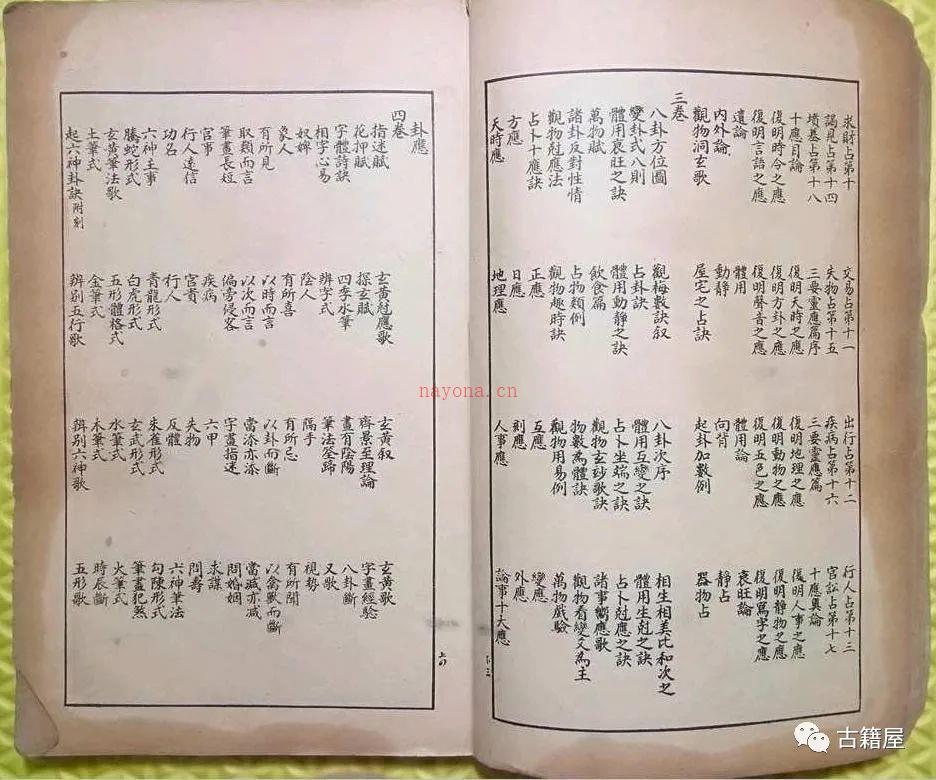 求財占第十 交易占第十一 出行占第十二 行人占第十三
謁見占第十四 失物占第十五 疾病占第十六 官訟占第十七
墳墓占第十八 三要靈應篇序 三要靈應篇 十應奧論
十應目論 復明天時之應 復明地理之應 復明人事之應
復明時令之應 復明方卦之應 復明動物之應 復明靜物之應
復明言語之應 復明聲音之應 復明五色之應 復明寫字之應
遺論 體用 體用論 衰旺論
內外論 動靜 向背 靜占
觀物洞玄歌 屋宅之占訣 起卦加數例 器物占
三卷
八卦方位圖 觀梅數訣叙 八卦次序 相生相美比和次之
變卦式八則 占卦訣 體用互變之訣 體用生剋之訣
體用衰旺之訣 體用動靜之訣 占卜坐端之訣 占卜尅應之訣
萬物賦 飲食篇 觀物玄砂歌訣 諸事響應歌
諸卦反對性情 占物類例 物數為體訣 觀物看變爻為主
觀物尅應法 觀物趣時訣 觀物用易例 萬物戲驗
占卜十應訣 正應 互應 變應
方應 日應 刻應 外應
天時應 地理應 人事應 論事十大應
卦應
四卷
指迷賦 玄黃尅應歌 玄黃叙 玄黃歌
花押賦 探玄賦 齊景至理論 字畫經驗
字體詩訣 四季水筆 畫有陰陽 八卦斷
相字心易 辨字式 筆法筌蹄 又歌
奴婢 陰人 隔手 視勢
衆人 有所喜 有所忌 有所聞
有所見 以時而言 以卦而斷 以禽獸而斷
取類而言 以次而言 當添亦添 當減亦減
筆畫長短 偏旁侵客 字畫指迷 問婚姻
官事 疾病 六甲 求謀
行人遠信 官貴 失物 問壽
功名 行人 反體 六神筆法
六神主事 青龍形式 朱雀形式 勾陳形式
騰蛇形式 白虎形式 玄武形式 筆畫犯煞
玄黃筆法歌 五形體格式 水筆式 火筆式
土筆式 金筆式 木筆式 時辰斷
起六神卦訣附刻 辨別五行歌 辨別六神歌 五形歌
nayona.cn
古籍屋